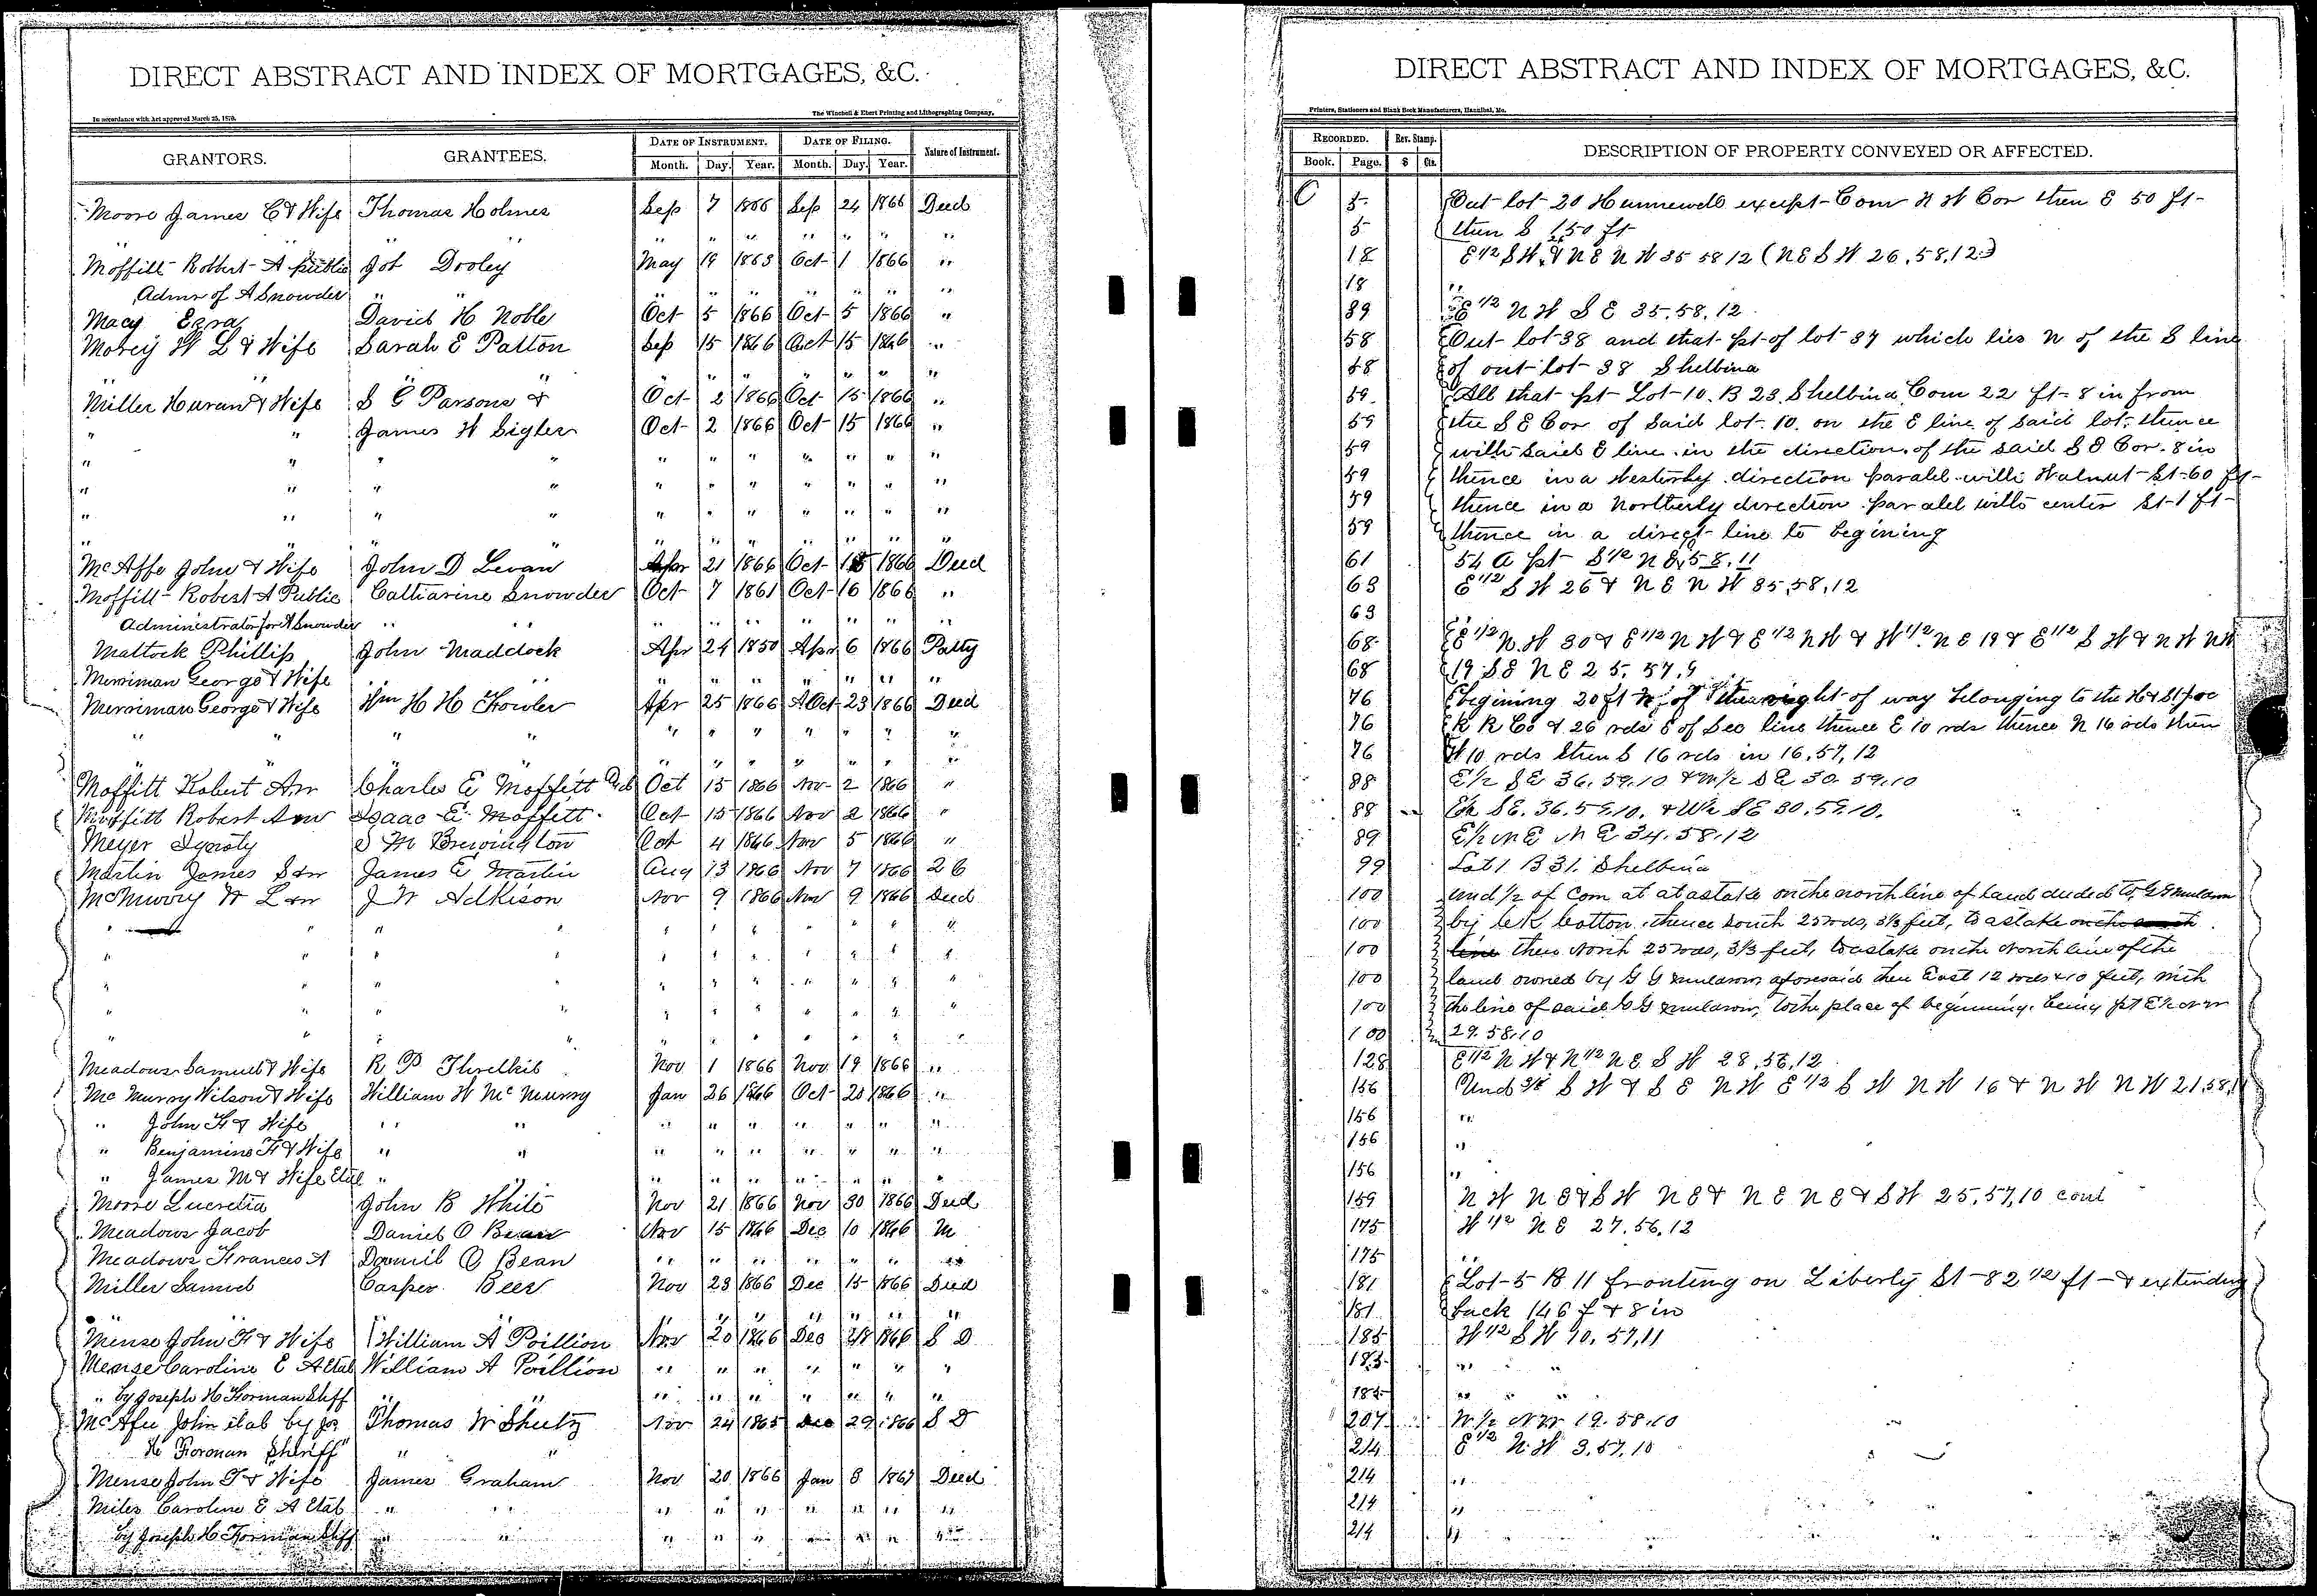 DIRECT ABSTRACT AND INDEX OF MORTGAGES, &C.
In accordance with Act approved March 25, 1870.
The Winchell & Ebert Printing and Lithographing Company,
GRANTORS. GRANTEES. DATE OF INSTRUMENT. DATE OF FILING. Nature of Instrument.
Month. Day. Year. Month. Day. Year.
Moore James C & Wife Thomas Holmes Sep 7 1866 Sep 24 1866 Deed
" " " " " " " " "
Moffitt Robbert A public Job Dooley May 19 1863 Oct 1 1866 "
Admr of A Snowder " " " " " " " " "
Macy Ezra David H Noble Oct 5 1866 Oct 5 1866 "
Morey W L & Wife Sarah E Patton Sep 15 1866 Oct 15 1866 "
" " " " " " " " " " "
Miller Huran & Wife S G Parsons & Oct 2 1866 Oct 15 1866 "
" " James W Sigler Oct 2 1866 Oct 15 1866 "
" " " " " " " " " " "
" " " " " " " " " " "
" " " " " " " " " " "
" " " " " " " " " " "
McAffe John & Wife John D Levan Apr 21 1866 Oct 15 1866 Deed
Moffitt Robert A Public Catharine Snowder Oct 7 1861 Oct 16 1866 "
Administrator for A Snowder " " " " " " " " "
Mattock Phillip John Maddock Apr 24 1850 Apr 6 1866 Patty
Merriman George & Wife " " " " " " " " "
Merriman George & Wife Wm H H Fowler Apr 25 1866 Oct 23 1866 Deed
" " " " " " " " " " "
" " " " " " " " " " "
Moffitt Robert Anr Charles E Moffitt Oct 15 1866 Nov 2 1866 "
Moffitt Robert Anr Isaac E Moffett Oct 15 1866 Nov 2 1866 "
Meyer S M Brewington Oct 4 1866 Nov 5 1866 "
Martin James S &w James E Martin Aug 13 1866 Nov 7 1866 26
McMurry W L &w J W Adkison Nov 9 1866 Nov 9 1866 Deed
" " " " " " " " " " "
" " " " " " " " " " "
" " " " " " " " " " "
" " " " " " " " " " "
" " " " " " " " " " "
Meadows Samuel & Wife R P Threlkil Nov 1 1866 Nov 19 1866 "
McMurry Wilson & Wife William W McMurry Jan 26 1866 Oct 20 1866 "
" John F & Wife " " " " " " " " "
" Benjamin F & Wife " " " " " " " " "
" James M & Wife Etal " " " " " " " " "
Moore Lucretia John B White Nov 21 1866 Nov 30 1866 Deed
Meadows Jacob Daniel O Bean Nov 15 1866 Dec 10 1866 M
Meadows Frances A Daniel O Bean " " " " " " "
Miller Samuel Casper Beer Nov 23 1866 Dec 15 1866 Deed
" " " " " " " "
Mense John F & Wife William A Poillion Nov 20 1866 Dec 28 1866 S D
Mense Caroline E A Etal William A Poillion " " " " " " "
" by Joseph H Forman Shff " " " " " " " " "
McAfee John etal by Jos Thomas W Sheetz Nov 24 1865 Dec 29 1866 S D
H Foreman Sheriff " "
Mense John F & Wife James Graham Nov 20 1866 Jan 8 1867 Deed
Miles Caroline E A Etal " " " " " " " " "
by Joseph H Forman Shff " " " " " " " " "
DIRECT ABSTRACT AND INDEX OF MORTGAGES, &C.
Printers, Stationers and Blank Book Manufacturers, Hannibal, Mo.
RECORDED. Rev. Stamp. DESCRIPTION OF PROPERTY CONVEYED OR AFFECTED.
Book. Page. $ Cts.
C 5 Out lot 20 Hunnewell except Com N W Cor then E 50 ft
5 then S 150 ft
18 E 1/2 S W & N E N W 35 58 12 (N E S W 26, 58, 12)
18 "
39 E 1/2 N W S E 35, 58, 12
58 Out lot 38 and that pt of lot 37 which lies N of the S line
58 of out lot 38 Shelbina
59 All that pt Lot 10 B 23 Shelbina Com 22 ft 8 in from
59 the S E Cor of said lot 10 on the E line of said lot thence
59 with said E line in the direction of the said S E Cor 8 in
59 thence in a Westerly direction paralel with Walnut St 60 ft
59 thence in a Northerly direction paralel with center St 1 ft
59 thence in a direct line to begining
61 54 A pt S 1/2 N E 5 58, 11
63 E 1/2 S W 26 & N E N W 35, 58, 12
63 "
68 E 1/2 N W 30 & E 1/2 N W & E 1/2 N W & W 1/2 N E 19 & E 1/2 S W & N W N W
68 19 S E N E 25, 57, 9
76 begining 20 ft N of the right of way belonging to the H & St Joe
76 R R Co & 26 rds E of Sec line thence E 10 rds thence N 16 rds then
76 W 10 rds then S 16 rds in 16, 57, 12
88 E 1/2 S E 36. 59. 10 & W 1/2 S E 30. 59. 10
88 E 1/2 S E. 36. 59. 10. & W 1/2 S E 30. 59. 10.
89 E 1/2 N E N E. 34. 58. 12
99 Lot 1 B 31 Shelbina
100 und 1/2 of Com at at a stake on the north line of land deeded to G G Muldrow
100 by C K Cotton, thence South 25 rods, 3 1/3 feet, to a stake on the south
100 line then North 25 rods, 3 1/3 feet, to a stake on the North line of the
100 land owned by G G Muldrow, aforesaid then East 12 rods & 10 feet, with
100 the line of said G G Muldrow, to the place of beginning. being pt E 1/2 N W
100 29. 58. 10
128 E 1/2 N W & N 1/2 N E S W 28, 56, 12
156 Und S W & S E N W E 1/2 S W N W 16 & N W N W 21, 58, 11
156 "
156 "
156 "
159 N W N E & S W N E & N E N E & S W 25, 57, 10 cont
175 W 1/2 N E 27, 56, 12
175 "
181 Lot 5 B 11 fronting on Liberty St 82 1/2 ft & extending
181 back 146 f & 8 in
185 W 1/2 S W 10, 57, 11
185 " "
185 " " "
207 W 1/2 N W 19. 58. 10
214 E 1/2 N W 3, 57, 10
214 "
214 "
214 "